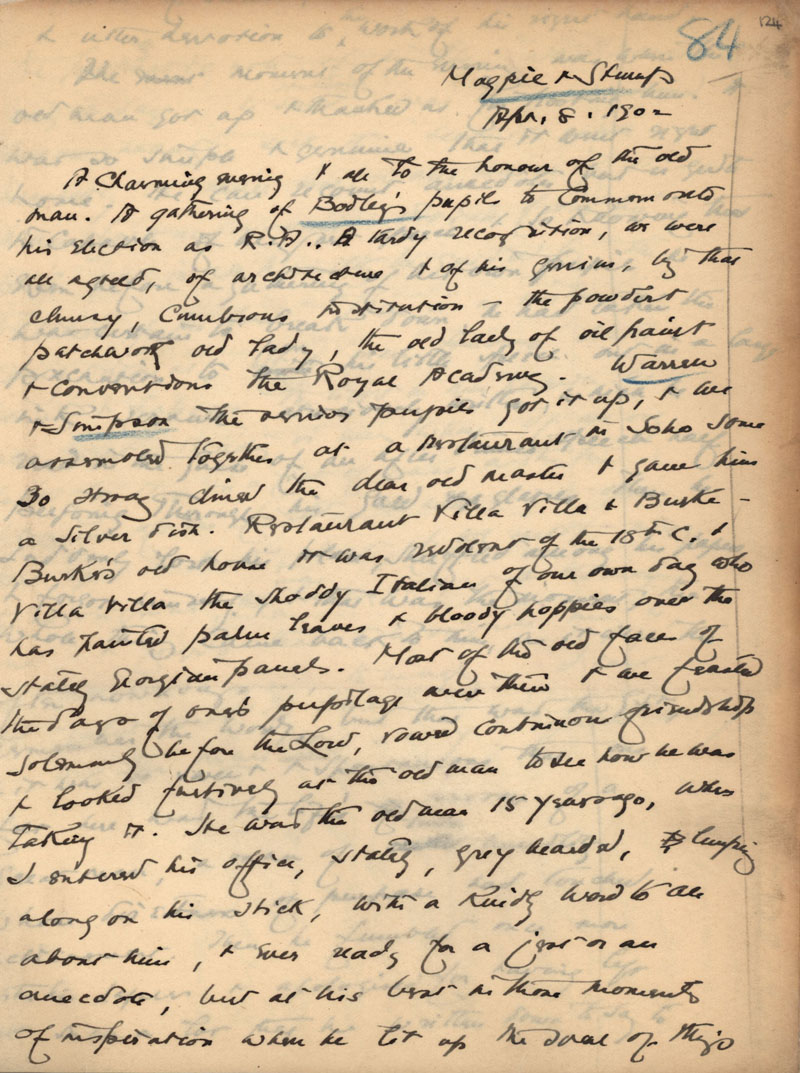 84
124
Magpie & Stump
Apr. 8. 1902
A charming evening & all to the honour of the old
man. A gathering of Bodley's pupils to commemorate
his election as R.A.. A tardy recognition, we were
all agreed, of architecture & of his genius, by that
clumsy, cumbrous institution – the powdery
patchwork old lady, the old lady of oil paint
& conventions the Royal Academy. Warren
& Simpson the senior pupils got it up, & we
assembled together at a restaurant in Soho some
30 strong dined the dear old master & gave him
a silver dish. Restaurant Villa Villa & Burke –
Burke's old house it was redolent of the 18th C. &
Villa Villa the shoddy Italian of our own day who
has painted palm leaves & bloody poppies over the
stately Georgian panels. Most of the old faces of
the days of one's pupilage were there & we feasted
solemnly before the Lord, vowed continuous friendship
& looked furtively at the old man to see how he was
taking it. He was the old man 15 years ago, when
I entered his office, stately, grey bearded, limping
along on his stick, with a kindly word to all
about him, & ever ready for a jest or an
anecdote, but at his best in those moments
of inspiration when he lit up the soul of things